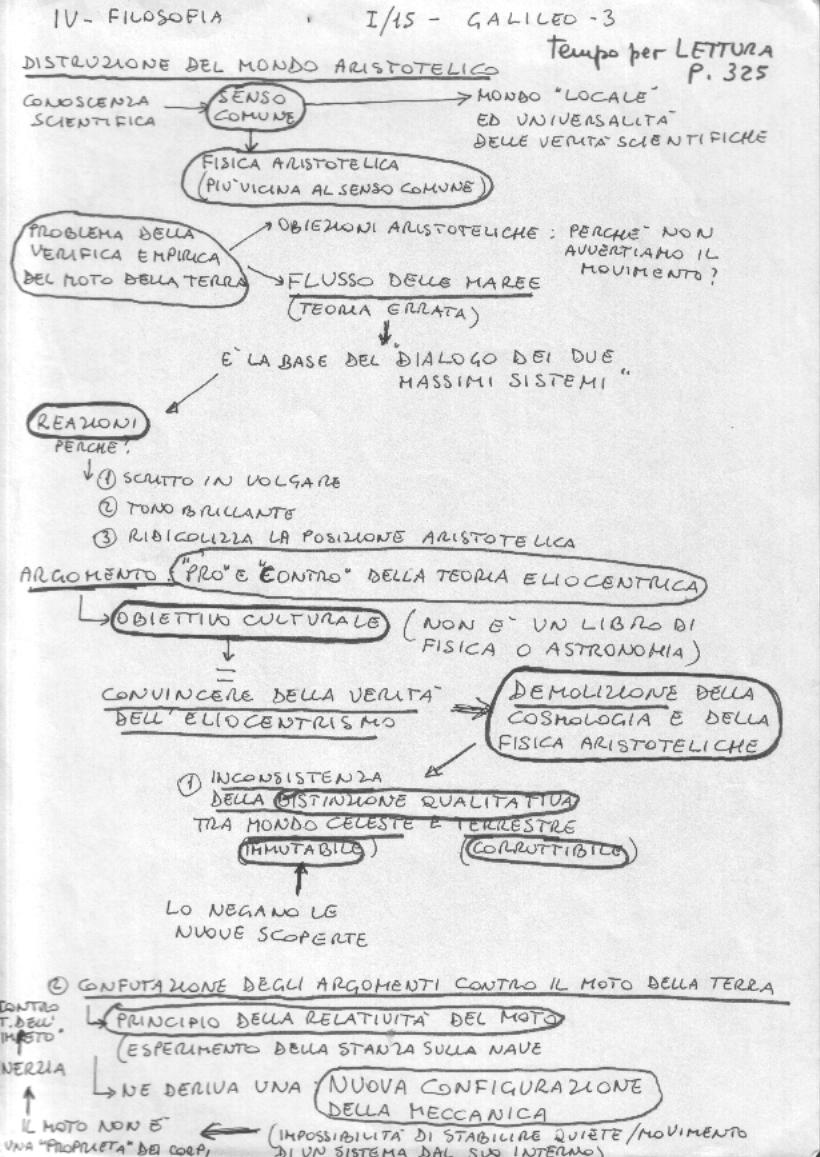 IV- FILOSOFIA I/15 - GALILEO -3
tempo per LETTURA
P. 325
DISTRUZIONE DEL MONDO ARISTOTELICO
CONOSCENZA
SCIENTIFICA
SENSO
COMUNE
MONDO "LOCALE"
ED UNIVERSALITÀ
DELLE VERITÀ SCIENTIFICHE
FISICA ARISTOTELICA
(PIÙ VICINA AL SENSO COMUNE)
PROBLEMA DELLA
VERIFICA EMPIRICA
DEL MOTO DELLA TERRA
OBIEZIONI ARISTOTELICHE : PERCHÈ NON
AVVERTIAMO IL
MOVIMENTO?
FLUSSO DELLE MAREE
(TEORIA ERRATA)
E' LA BASE DEL "DIALOGO DEI DUE
MASSIMI SISTEMI"
REAZIONI
PERCHÈ?
① SCRITTO IN VOLGARE
② TONO BRILLANTE
③ RIDICOLIZZA LA POSIZIONE ARISTOTELICA
ARGOMENTO : "PRO" E "CONTRO" DELLA TEORIA ELIOCENTRICA
OBIETTIVO CULTURALE (NON E' UN LIBRO DI
FISICA O ASTRONOMIA)
=
CONVINCERE DELLA VERITÀ
DELL'ELIOCENTRISMO
DEMOLIZIONE DELLA
COSMOLOGIA E DELLA
FISICA ARISTOTELICHE
① INCONSISTENZA
DELLA DISTINZIONE QUALITATIVA
TRA MONDO CELESTE E TERRESTRE
(IMMUTABILE) (CORRUTTIBILE)
LO NEGANO LE
NUOVE SCOPERTE
② CONFUTAZIONE DEGLI ARGOMENTI CONTRO IL MOTO DELLA TERRA
PRINCIPIO DELLA RELATIVITÀ DEL MOTO
(ESPERIMENTO DELLA STANZA SULLA NAVE
CONTRO
T. DELL'
IMPETO"
NERZIA
NE DERIVA UNA : NUOVA CONFIGURAZIONE
DELLA MECCANICA
IL MOTO NON È
UNA "PROPRIETÀ" DEI CORPI
(IMPOSSIBILITÀ DI STABILIRE QUIETE/MOVIMENTO
DI UN SISTEMA DAL SUO INTERNO)